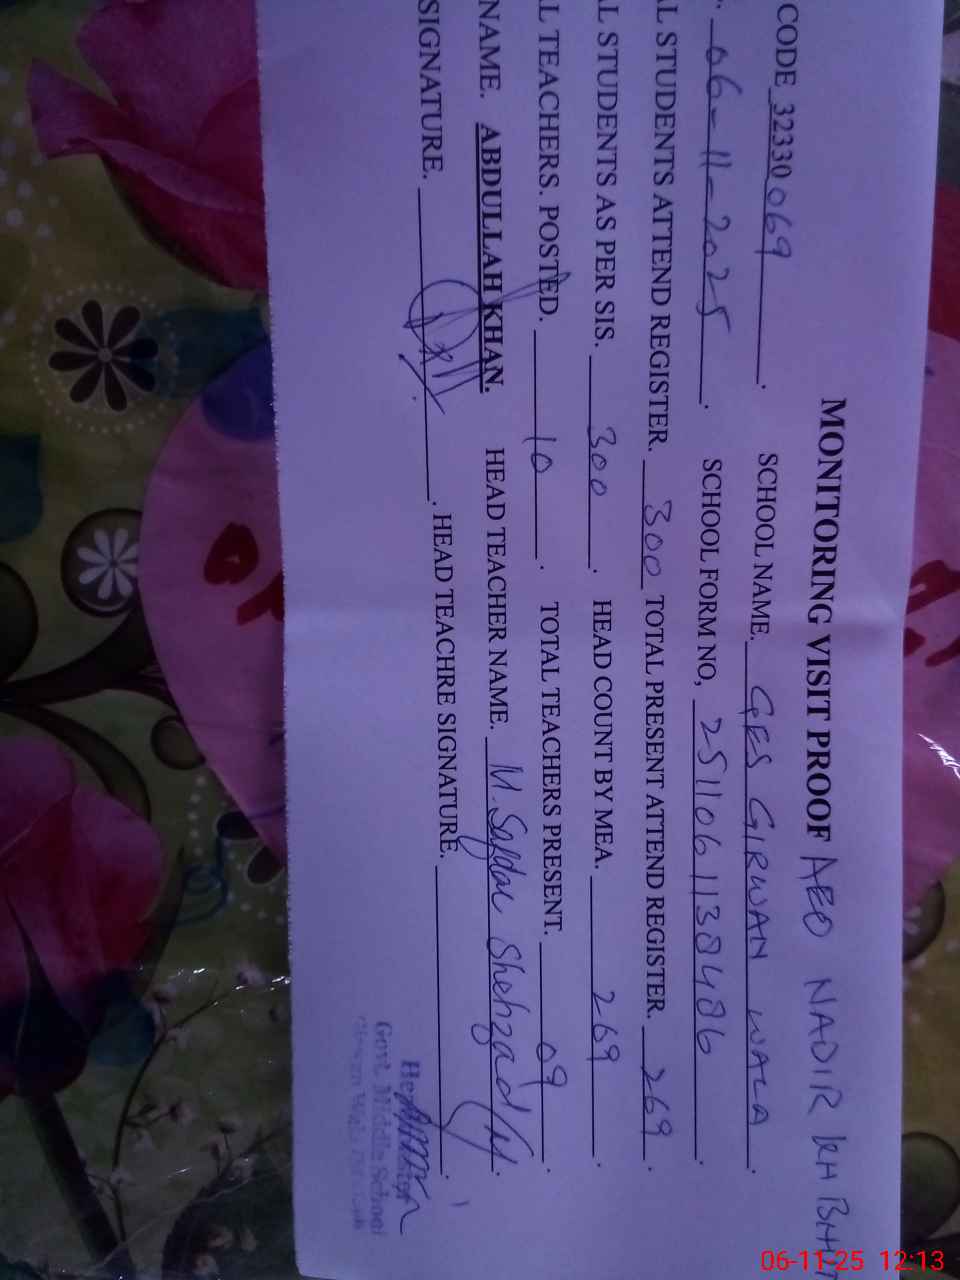 MONITORING VISIT PROOF AEO NADIR KH BHUT
CODE 32330069. SCHOOL NAME. GES GIRWAN WALA.
06-11-2025. SCHOOL FORM NO, 2511061138 486.
AL STUDENTS ATTEND REGISTER. 300 TOTAL PRESENT ATTEND REGISTER. 269.
AL STUDENTS AS PER SIS. 300. HEAD COUNT BY MEA. 269.
AL TEACHERS. POSTED. 10. TOTAL TEACHERS PRESENT. 09.
NAME. ABDULLAH KHAN. HEAD TEACHER NAME. M. Safdar Shehzad.
SIGNATURE. . HEAD TEACHRE SIGNATURE. .
Govt. Middle School
06-11-25 12:13